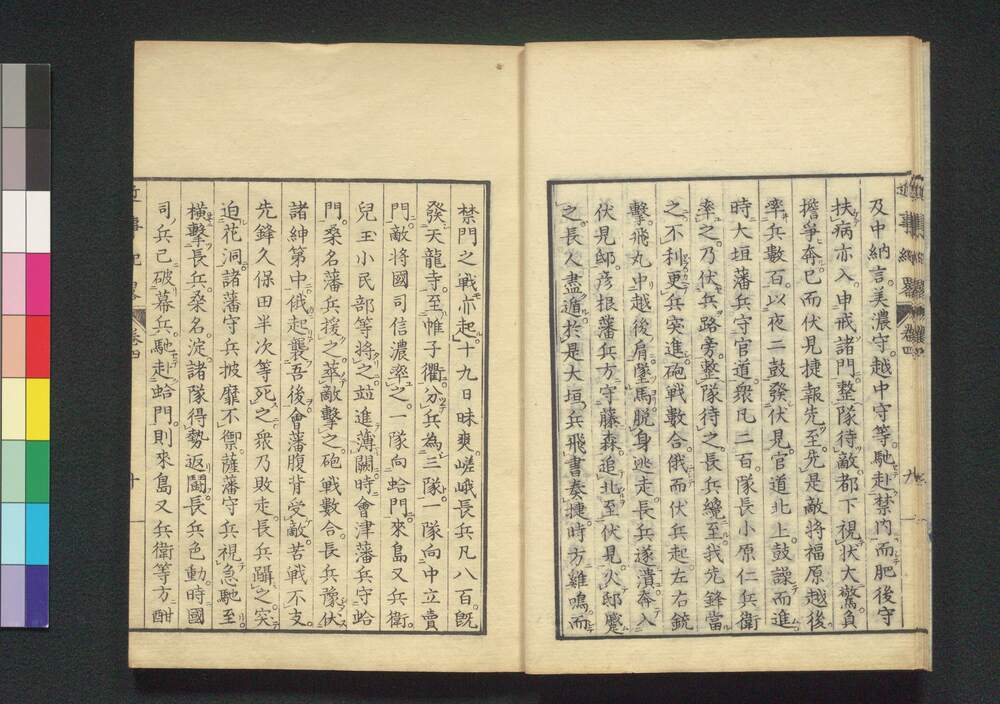 及中納言。美濃守。越中守等。馳赴禁内。而肥後守
扶病亦入。申戒諸門。整隊待敵。都下視状大驚。負
擔爭奔。已而伏見捷報先至。先是敵将福原越後。
率兵數百。以夜二鼓發伏見。官道北上。鼓譟而進。
時大垣藩兵守官道。衆凡二百。隊長小原仁兵衛
率之。乃伏兵路旁。整隊待之。長兵纔至。我先鋒當
之。不利。更兵突進。砲戰數合。俄而伏兵起左右銃
撃。飛丸中越後肩。墜馬脱身逃走。長兵遂潰。奔入
伏見邸。彦根藩兵方守藤森。追北至伏見。火邸蹙
之。長人盡遁。於是大垣兵飛書奏捷。時方雞鳴。而
禁門之戰亦起。十九日昧爽。嵯峨長兵凡八百。既
發天龍寺。至帷子衢。分兵為三隊。一隊向中立賣
門。敵将國司信濃率之。一隊向蛤門。來島又兵衛。
兒玉小民部等將之。竝進薄闕。時會津藩兵守蛤
門。桑名藩兵援之。萃敵擊之。砲戰數合。長兵豫伏
諸紳第中。俄起襲吾後。會藩腹背受敵。苦戰不支。
先鋒久保田半次等死之。衆乃敗走。長兵躡之。突
迫花洞。諸藩守兵披靡不禦。薩藩守兵視急馳至。
橫擊長兵。桑名。淀。諸隊得勢返鬪。長兵色動。時國
司兵已破幕兵。馳赴蛤門。則來島又兵衛等方酣
近事紀略
卷四
九
十